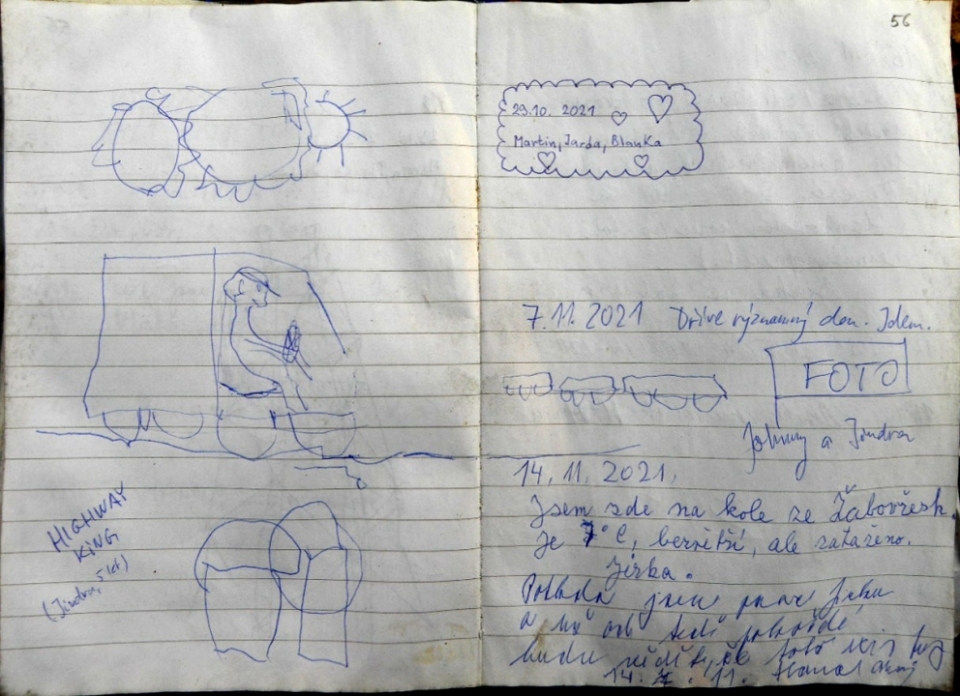 HIGHWAY
KING
(Jindra, 5 let)
56
29.10. 2021
Martin, Jarda, Blanka
7.11.2021 Dříve významný den. Jdem.
FOTO
Johnny a Jindra
14.11.2021.
Jsem zde na kole ze Žabovřesk.
Je 7°C, bezvětří, ale zataženo.
Jirka.
Potkala jsem pana Jirku
a už od teď
budu
14. 11.